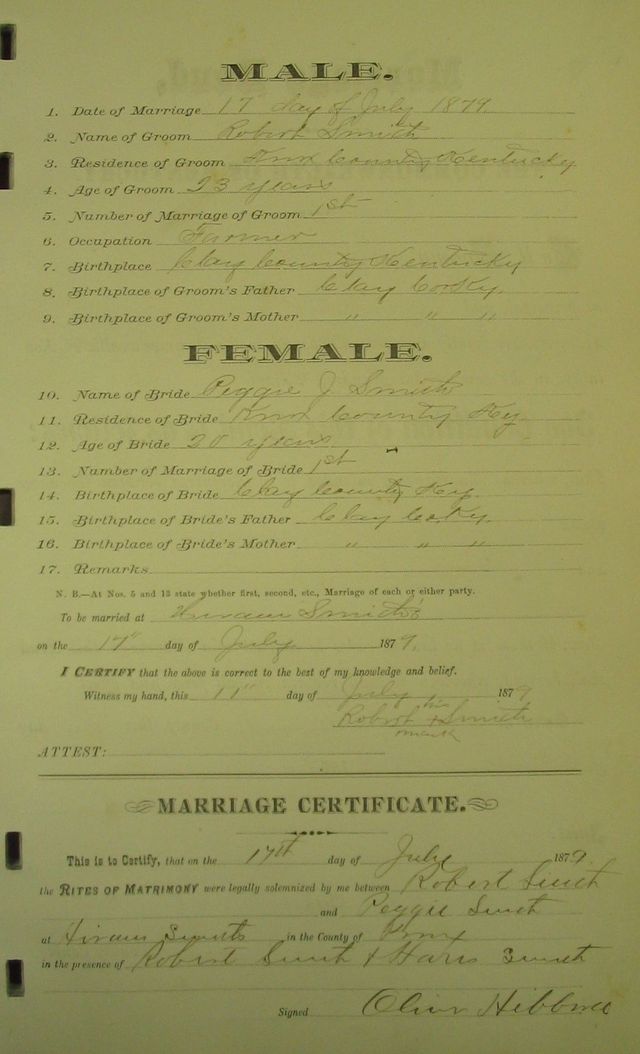 MALE.
1. Date of Marriage 17" day of July 1879
2. Name of Groom Robert Smith
3. Residence of Groom Knox County Kentucky
4. Age of Groom 23 years
5. Number of Marriage of Groom 1st
6. Occupation Farmer
7. Birthplace Clay County Kentucky
8. Birthplace of Groom's Father Clay Co Ky.
9. Birthplace of Groom's Mother " " "
FEMALE.
10. Name of Bride Peggie J Smith
11. Residence of Bride Knox County Ky
12. Age of Bride 20 years
13. Number of Marriage of Bride 1st
14. Birthplace of Bride Clay County Ky.
15. Birthplace of Bride's Father Clay Co Ky.
16. Birthplace of Bride's Mother " " "
17. Remarks
N. B.—At Nos. 5 and 13 state whether first, second, etc., Marriage of each or either party.
To be married at Hiram Smith's
on the 17" day of July 1879.
I CERTIFY that the above is correct to the best of my knowledge and belief.
Witness my hand, this 11" day of July 1879
his
Robert + Smith
mark
ATTEST:
MARRIAGE CERTIFICATE.
This is to Certify, that on the 17th day of July 1879.
the RITES OF MATRIMONY were legally solemnized by me between Robert Smith
and Peggie Smith
at Hiram Smiths in the County of Knox
in the presence of Robert Smith + Smith
Signed